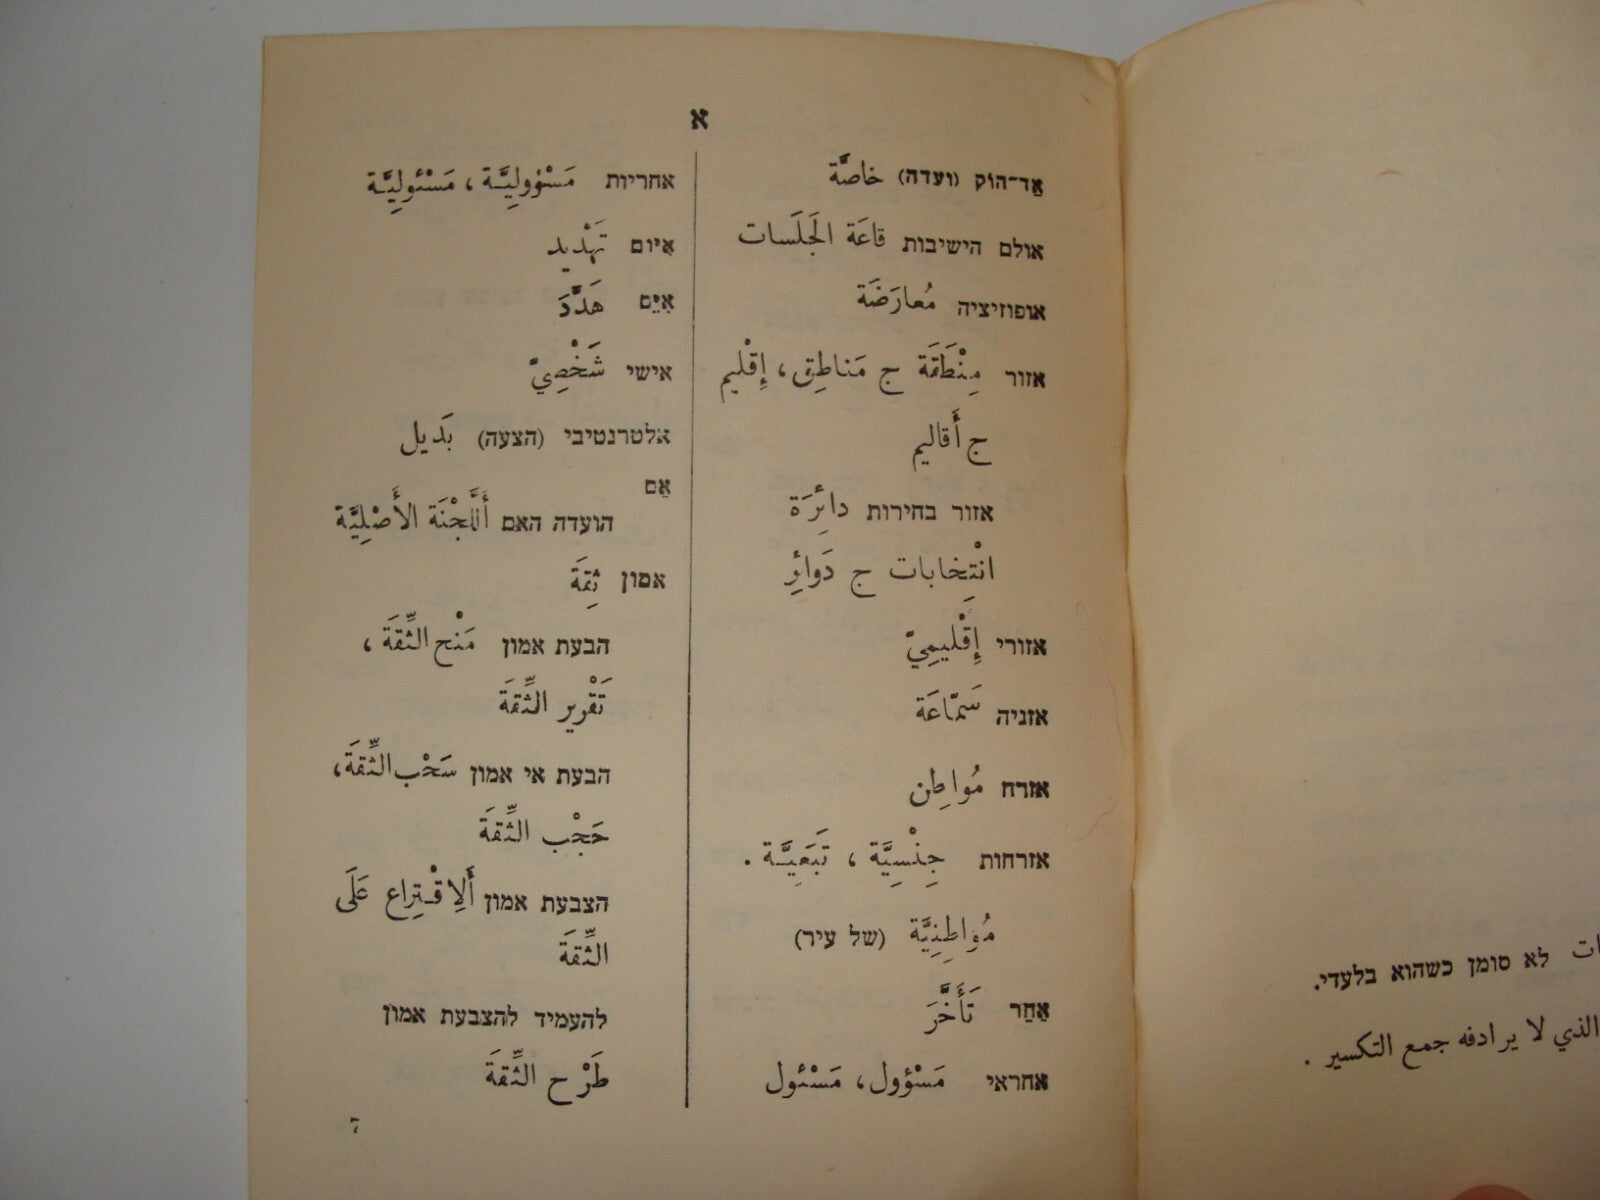 א
אַד־הוֹק (ועדה) خاصَّة
אולם הישיבות قاعَة الجَلَسات
אופוזיציה مُعارَضَة
אזור مِنْطَقَة ج مَناطِق، إِقْليم
ج أَقاليم
אזור בחירות دائِرَة
انْتِخابات ج دَوائِر
אזורי إِقْليمِيّ
אזניה سَمّاعَة
אזרח مُواطِن
אזרחות جِنْسِيَّة ، تَبَعِيَّة .
مُواطِنِيَّة (של עיר)
אִחֵר تَأَخَّرَ
אחראי مَسْؤول، مَسْئول
אחריות مَسْؤولِيَّة ، مَسْئولِيَّة
איום تَهْديد
אִיֵּם هَدَّدَ
אישי شَخْصِيّ
אלטרנטיבי (הצעה) بَديل
אֵם
הועדה האם أَللَّجْنَة الأَصْلِيَّة
אמון ثِقَة
הבעת אמון مَنْح الثِّقَة ،
تَقْرير الثِّقَة
הבעת אי אמון سَحْب الثِّقَة،
حَجْب الثِّقَة
הצבעת אמון أَلِاقْتِراع عَلَى
الثِّقَة
להעמיד להצבעת אמון
طَرْح الثِّقَة
7
ات לא סומן כשהוא בלעדי.
الذي لا يرادفه جمع التكسير .